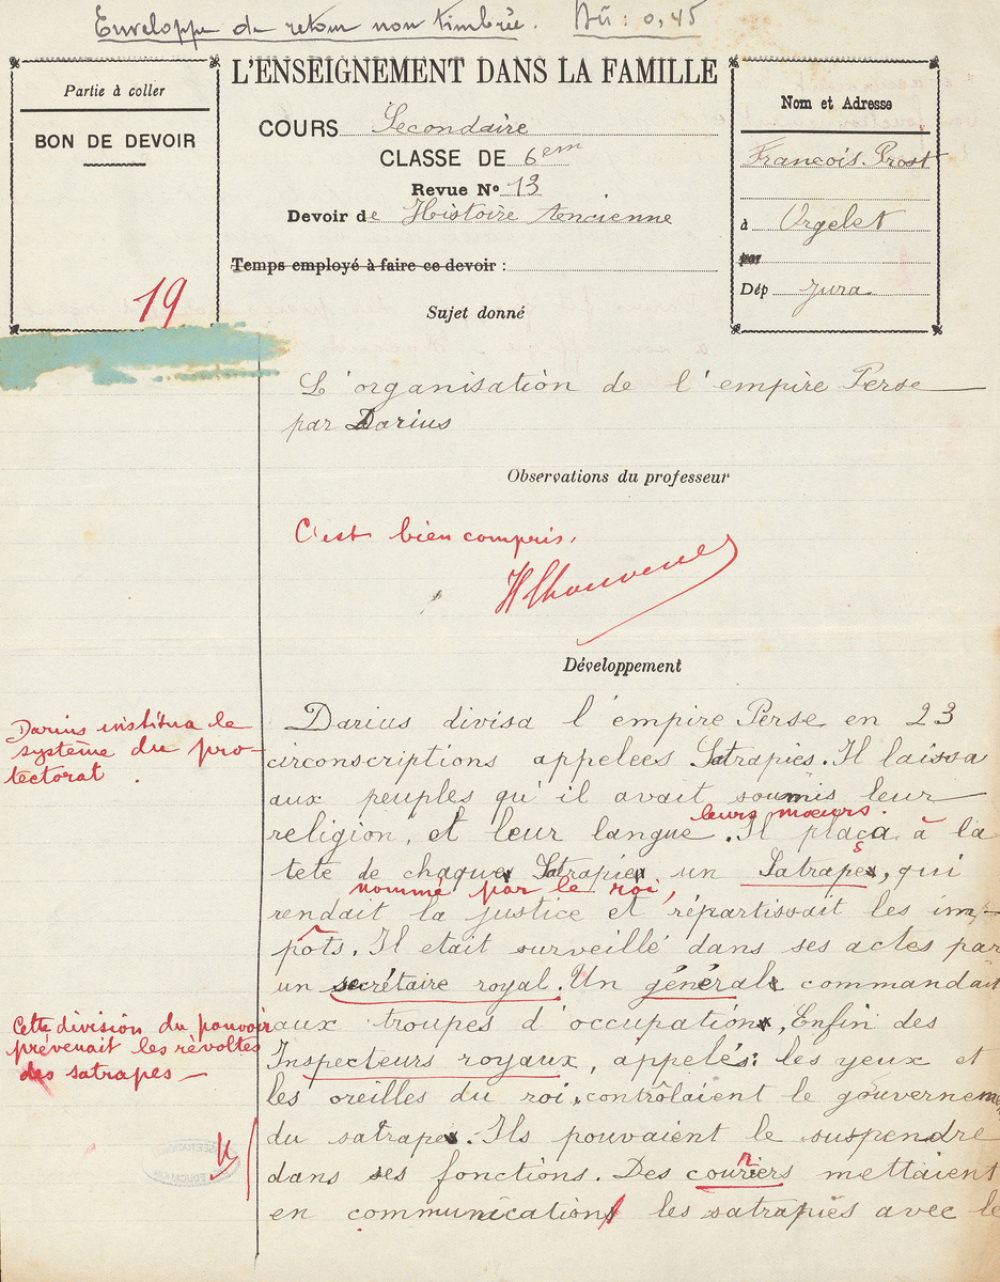 Enveloppe de retour non timbrée. Dû : 0,45
Partie à coller
BON DE DEVOIR
19
L'ENSEIGNEMENT DANS LA FAMILLE
COURS Secondaire
CLASSE DE 6em
Revue No 13
Devoir de Histoire Ancienne
Temps employé à faire ce devoir :
Nom et Adresse
François Prost
à Orgelet
par
Dép Jura
Sujet donné
L'organisation de l'empire Perse
par Darius
Observations du professeur
C'est bien compris.
Développement
Darius institua le
système du pro-
tectorat.
Darius divisa l'empire Perse en 23
circonscriptions appelées Satrapies. Il laissa
aux peuples qu'il avait soumis leur
leurs mœurs.
religion, et leur langue. Il plaça à la
tete de chaque Satrapie un Satrape, qui
nommé par le roi,
rendait la justice et répartissait les im-
pôts. Il etait surveillé dans ses actes par
un secrétaire royal. Un général commandait
Cette division du pouvoir
prévenait les révoltes
des satrapes —
aux troupes d'occupation, Enfin des
Inspecteurs royaux, appelés: les yeux et
les oreilles du roi, contrôlaient le gouverneme
du satrape. Ils pouvaient le suspendre
dans ses fonctions. Des courriers mettaient
en communication les satrapies avec le